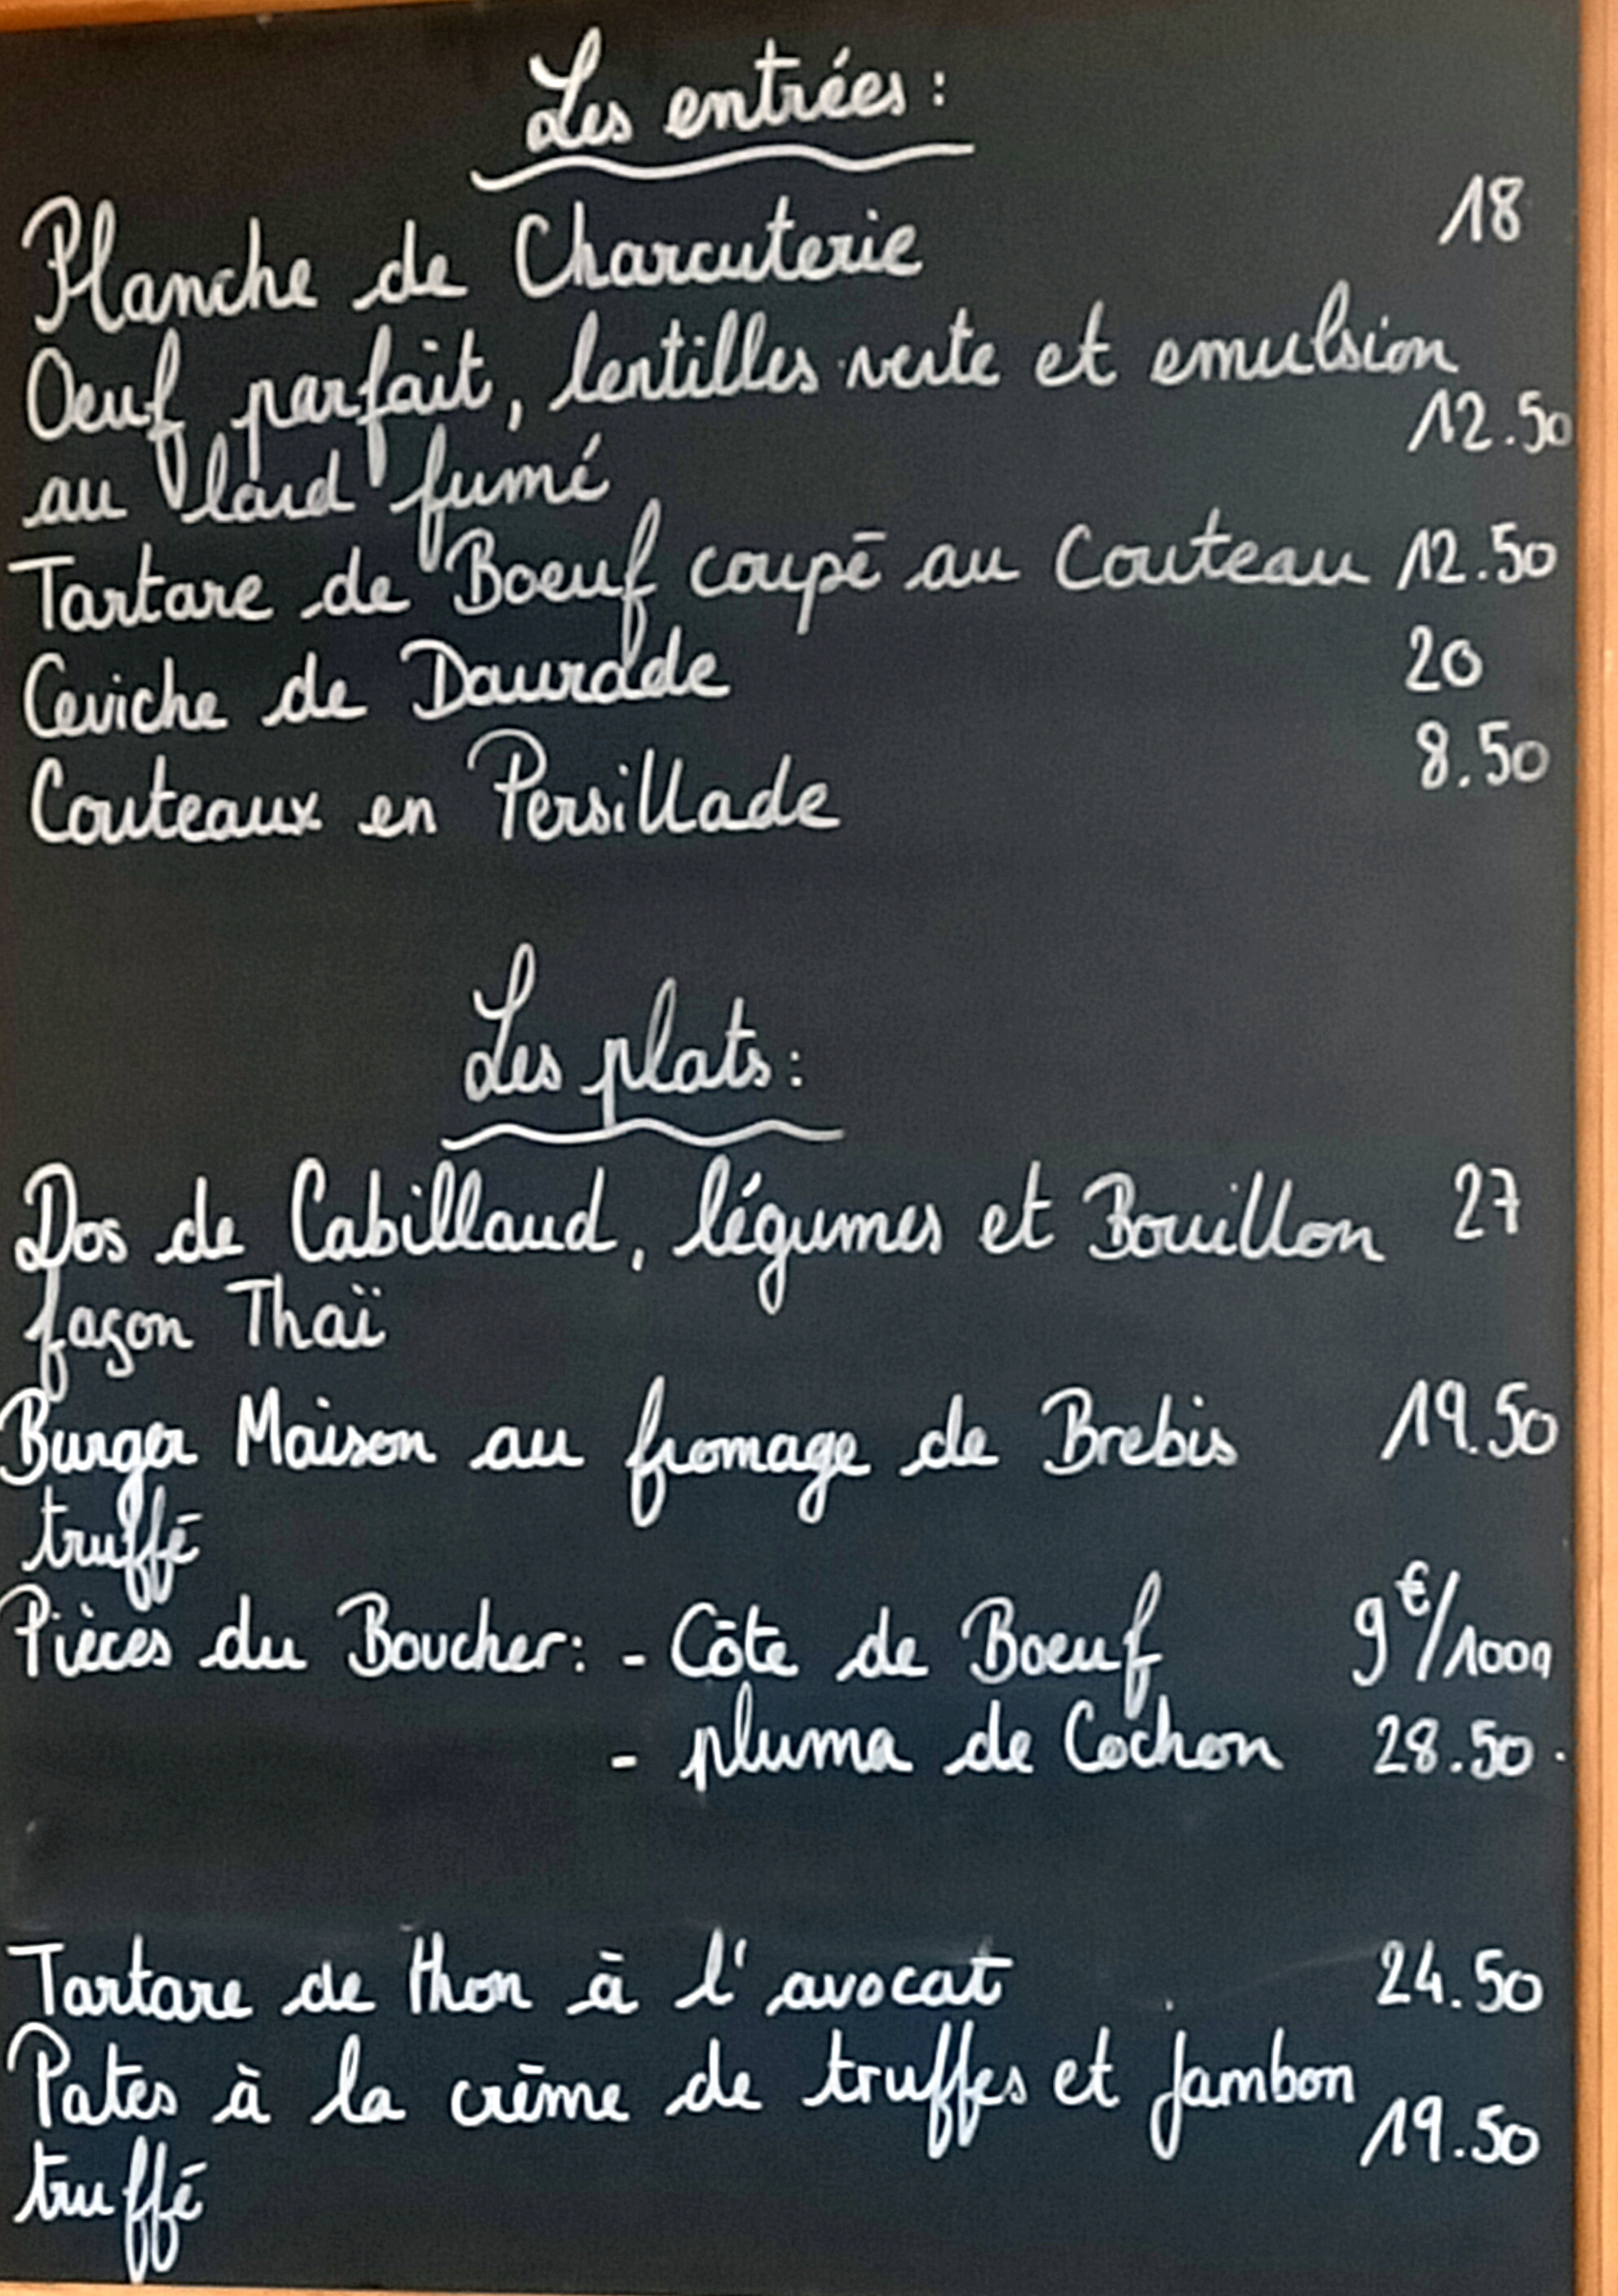 Les entrées :
Planche de Charcuterie 18
Oeuf parfait, lentilles verte et emulsion
au lard fumé 12.50
Tartare de Boeuf coupé au Couteau 12.50
Ceviche de Daurade 20
Couteaux en Persillade 8.50
Les plats :
Dos de Cabillaud, légumes et Bouillon 27
façon Thaï
Burger Maison au fromage de Brebis 19.50
truffé
Pièces du Boucher : - Côte de Boeuf 9€/100g
- pluma de Cochon 28.50
Tartare de thon à l'avocat 24.50
Pates à la crème de truffes et Jambon
truffé 19.50